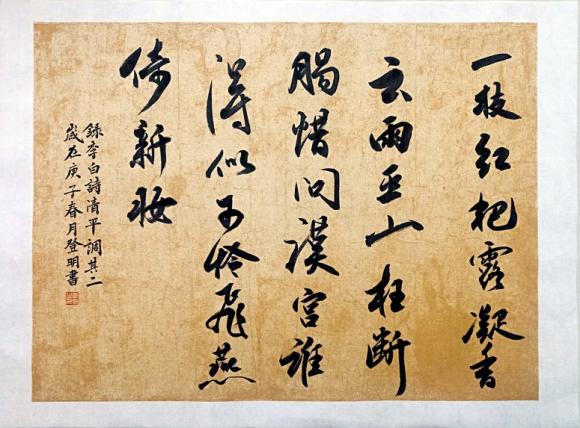 一枝红艳露凝香
云雨巫山枉断
腸借问漢宫谁
得似可怜飛燕
倚新妝
錄李白詩清平調其二
歲在庚子春月登明書